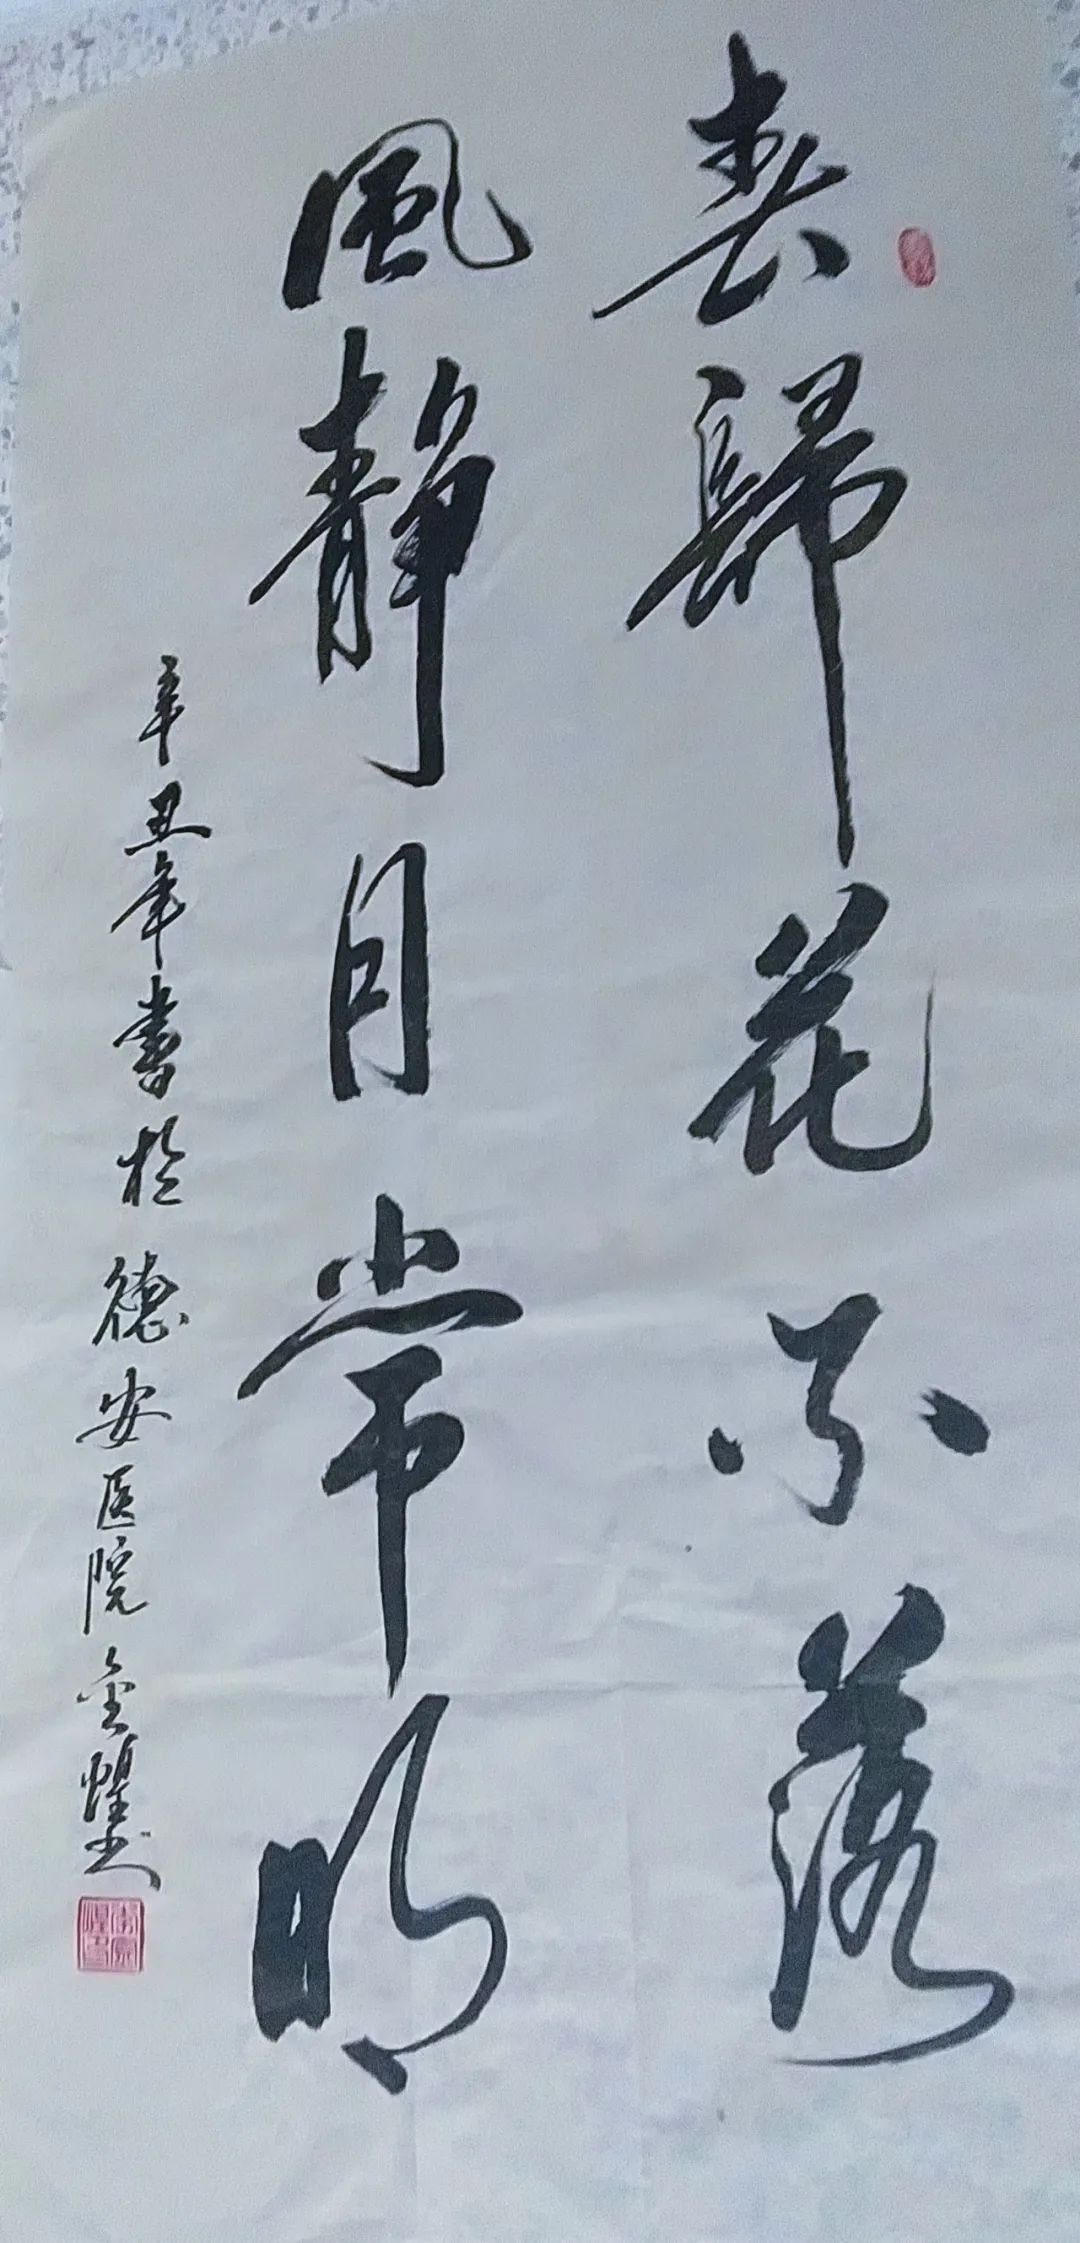 春歸花不落
風靜月常明
辛丑年書於德安医院金煌书